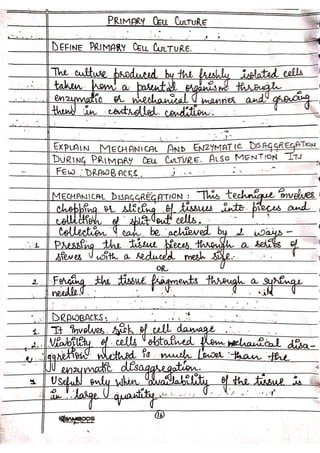 PRIMARY CELL CULTURE
DEFINE PRIMARY CELL CULTURE.
The culture produced by the freshly isolated cells
taken from a parental organism through
enzymatic or mechanical manner and growing
them in controlled condition.
EXPLAIN MECHANICAL AND ENZYMATIC DISAGGREGATION
DURING PRIMARY CELL CULTURE. ALSO MENTION ITS
FEW DRAWBACKS.
MECHANICAL DISAGGREGATION: This technique involves
chopping or slicing of tissues into pieces and
collection of spilt out cells.
Collection can be achieved by 2 ways-
1. Pressing the tissue pieces through a series of
sieves with a reduced mesh size.
OR
2. Forcing the tissue fragments through a syringe
needle.
DRAWBACKS:
1. It involves risk of cell damage
2. Viability of cells obtained from mechanical disa-
ggretion method is much lower than the
enzymatic disaggregation.
3 Useful only when availability of the tissue is
in large quantity.
16